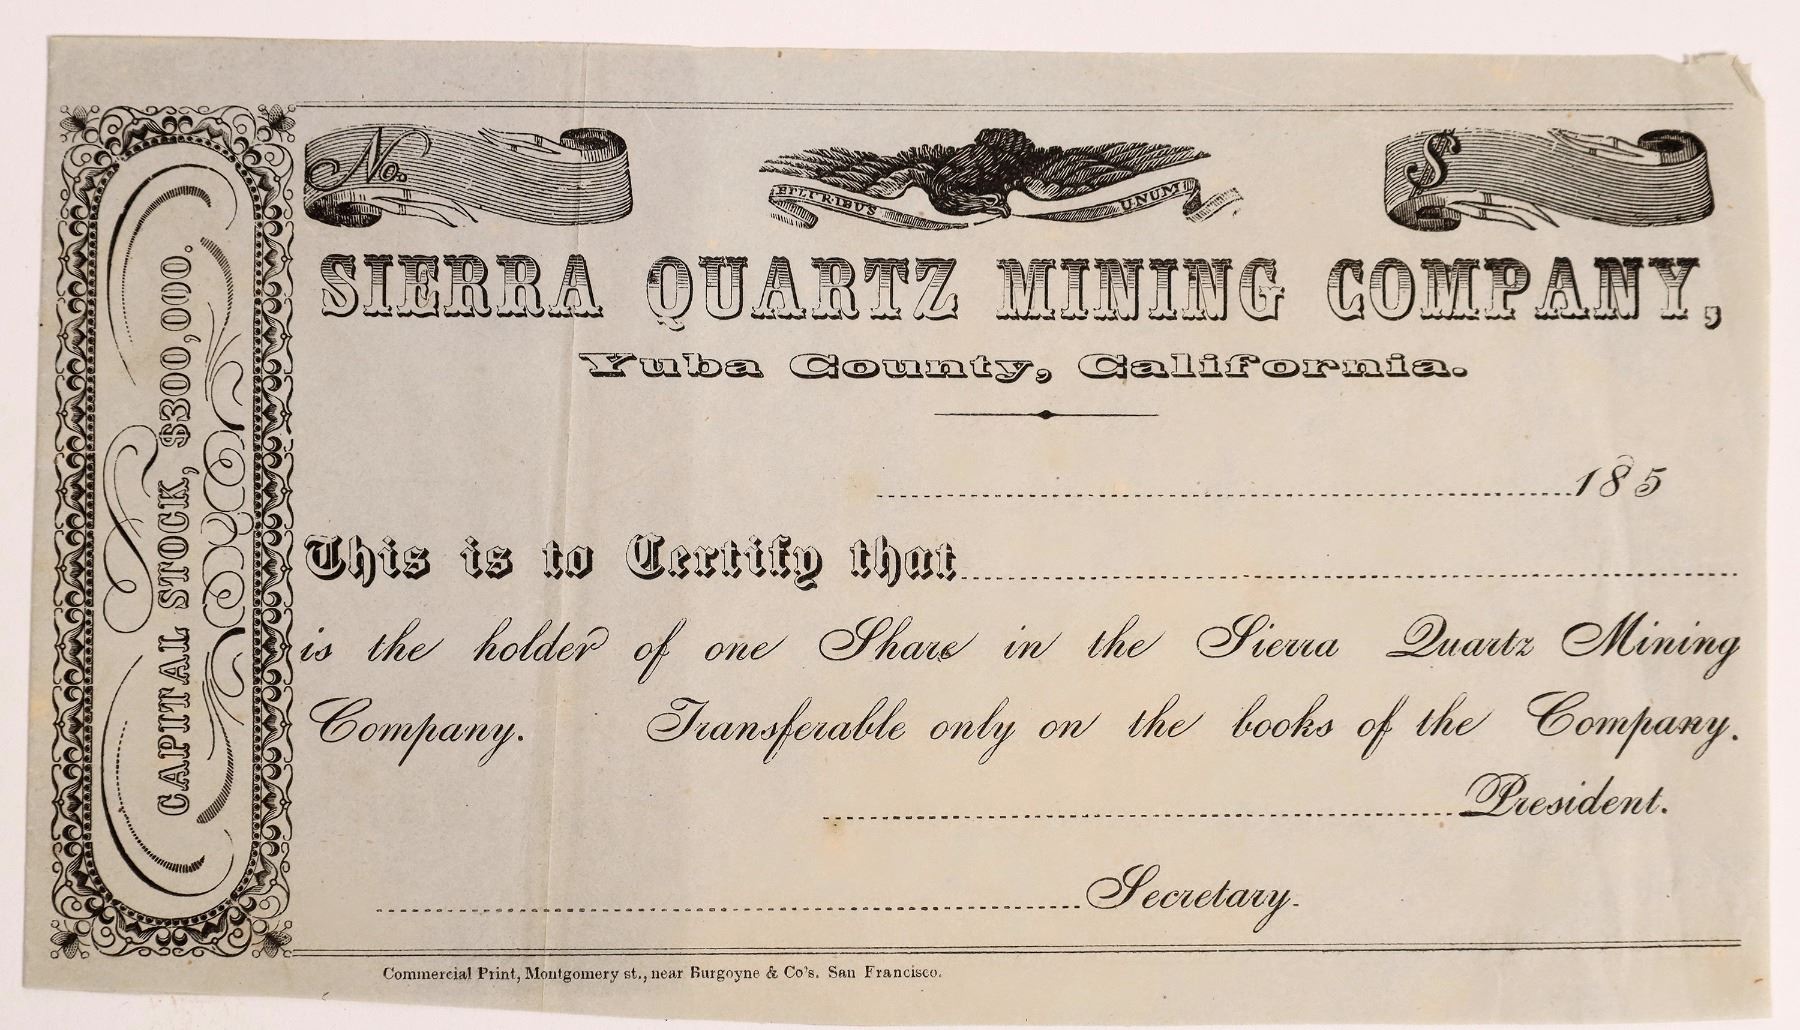 No.
E PLURIBUS UNUM
$
SIERRA QUARTZ MINING COMPANY,
Yuba County, California.
185
This is to Certify that
is the holder of one Share in the Sierra Quartz Mining
Company. Transferable only on the books of the Company.
President.
Secretary.
CAPITAL STOCK, $300,000.
Commercial Print, Montgomery st., near Burgoyne & Co's. San Francisco.